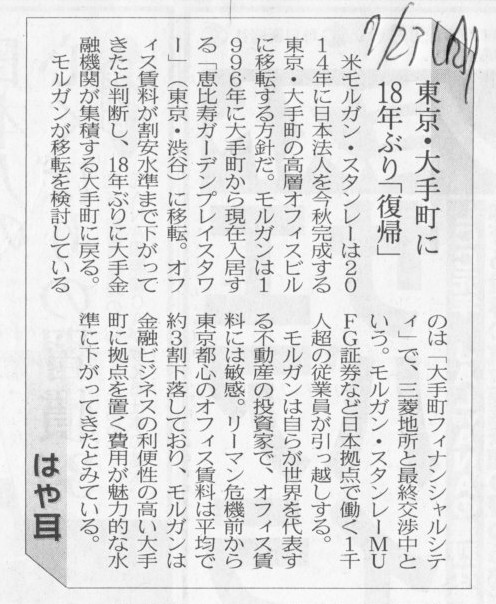 7/23(月)
東京・大手町に
18年ぶり「復帰」
米モルガン・スタンレーは20
14年に日本法人を今秋完成する
東京・大手町の高層オフィスビル
に移転する方針だ。モルガンは1
996年に大手町から現在入居す
る「恵比寿ガーデンプレイスタワ
ー」（東京・渋谷）に移転。オフ
ィス賃料が割安水準まで下がって
きたと判断し、18年ぶりに大手金
融機関が集積する大手町に戻る。
モルガンが移転を検討している
のは「大手町フィナンシャルシテ
ィ」で、三菱地所と最終交渉中と
いう。モルガン・スタンレーMU
FG証券など日本拠点で働く1千
人超の従業員が引っ越しする。
モルガンは自らが世界を代表す
る不動産の投資家で、オフィス賃
料には敏感。リーマン危機前から
東京都心のオフィス賃料は平均で
約3割下落しており、モルガンは
金融ビジネスの利便性の高い大手
町に拠点を置く費用が魅力的な水
準に下がってきたとみている。
はや耳